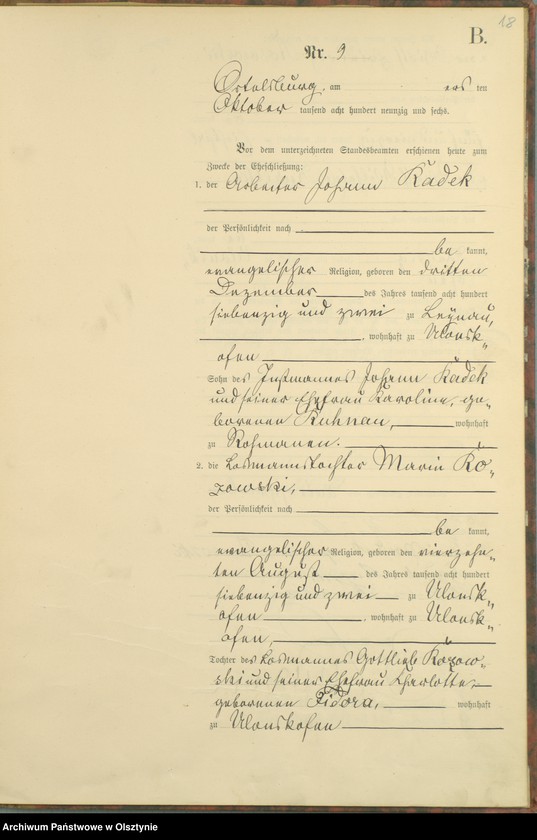 18
B.
Nr. 9
Ortelsburg, am ersten
Oktober tausend acht hundert neunzig und sechs.
Vor dem unterzeichneten Standesbeamten erschienen heute zum
Zwecke der Eheschließung:
1. der Arbeiter Johann Kadek
der Persönlichkeit nach
be kannt,
evangelischer Religion, geboren den dritten
Dezember des Jahres tausend acht hundert
siebenzig und zwei zu Leynau,
, wohnhaft zu Ulonsk„
ofen
Sohn des Instmannes Johann Kadek
und seiner Ehefrau Karoline, ge„
borenen Kuhnau, wohnhaft
zu Rohmanen.
2. die Losmannstochter Marie Ko„
zowski,
der Persönlichkeit nach
be kannt,
evangelischer Religion, geboren den vierzehn„
ten August des Jahres tausend acht hundert
siebenzig und zwei zu Ulonsk„
ofen, wohnhaft zu Ulonsk„
ofen,
Tochter des Losmannes Gottlieb Kozow„
ski und seiner Ehefrau Charlotte
geborenen Fidora, wohnhaft
zu Ulonskofen
Archiwum Państwowe w Olsztynie